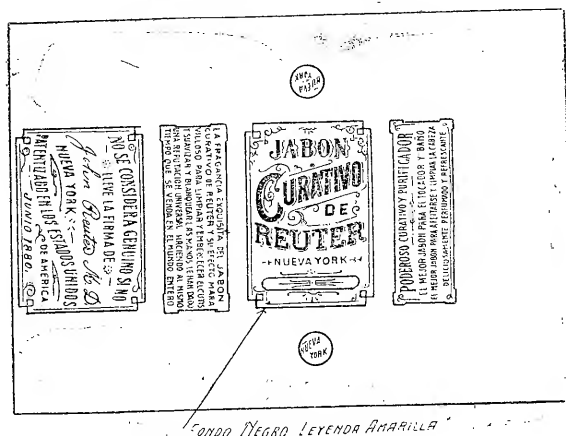 NO SE CONSIDERA GENUINO SI NO
LLEVE LA FIRMA DE
John Reuter M.D.
NUEVA YORK
PATENTUADO EN LOS ESTADOS UNIDOS
DE AMERICA
JUNIO 1880.
LA FRAGANCIA EXQUISITA DEL JABON
CURATIVO DE REUTER Y SU EFECTO MARA
VILLOSO PARA LIMPIAR Y EMBELLECER EL CUTIS
Y SUAVIZAR Y BLANQUEAR LAS MANOS, LE HAN DADO
UNA REPUTACION UNIVERSAL HACIENDO AL MISMO
TIEMPO QUE SE VENDA EN EL MUNDO ENTERO
NUEVA
YORK
JABON
CURATIVO
DE
REUTER
NUEVA YORK
NUEVA
YORK
PODEROSO CURATIVO Y PURIFICADOR
EL MEJOR JABON PARA EL TOCADOR Y BAÑO
EL MEJOR JABON PARA AFEITARSE Y LIMPIAR LA CABEZA
DELICIOSAMENTE PERFUMADO Y REFRESCANTE
FONDO NEGRO LEYENDA AMARILLA